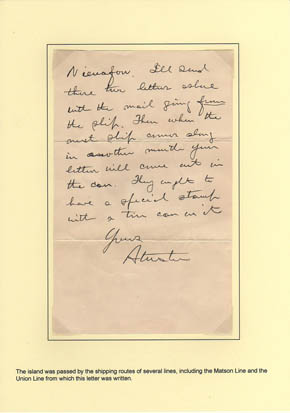 Niuafou. I'll send
these two letters ashore
with the mail going from
the ship. Then when the
next ship comes along
in another month your
letter will come out in
the can. They ought to
have a special stamp
with a tin can on it
Yours
The island was passed by the shipping routes of several lines, including the Matson Line and the
Union Line from which this letter was written.